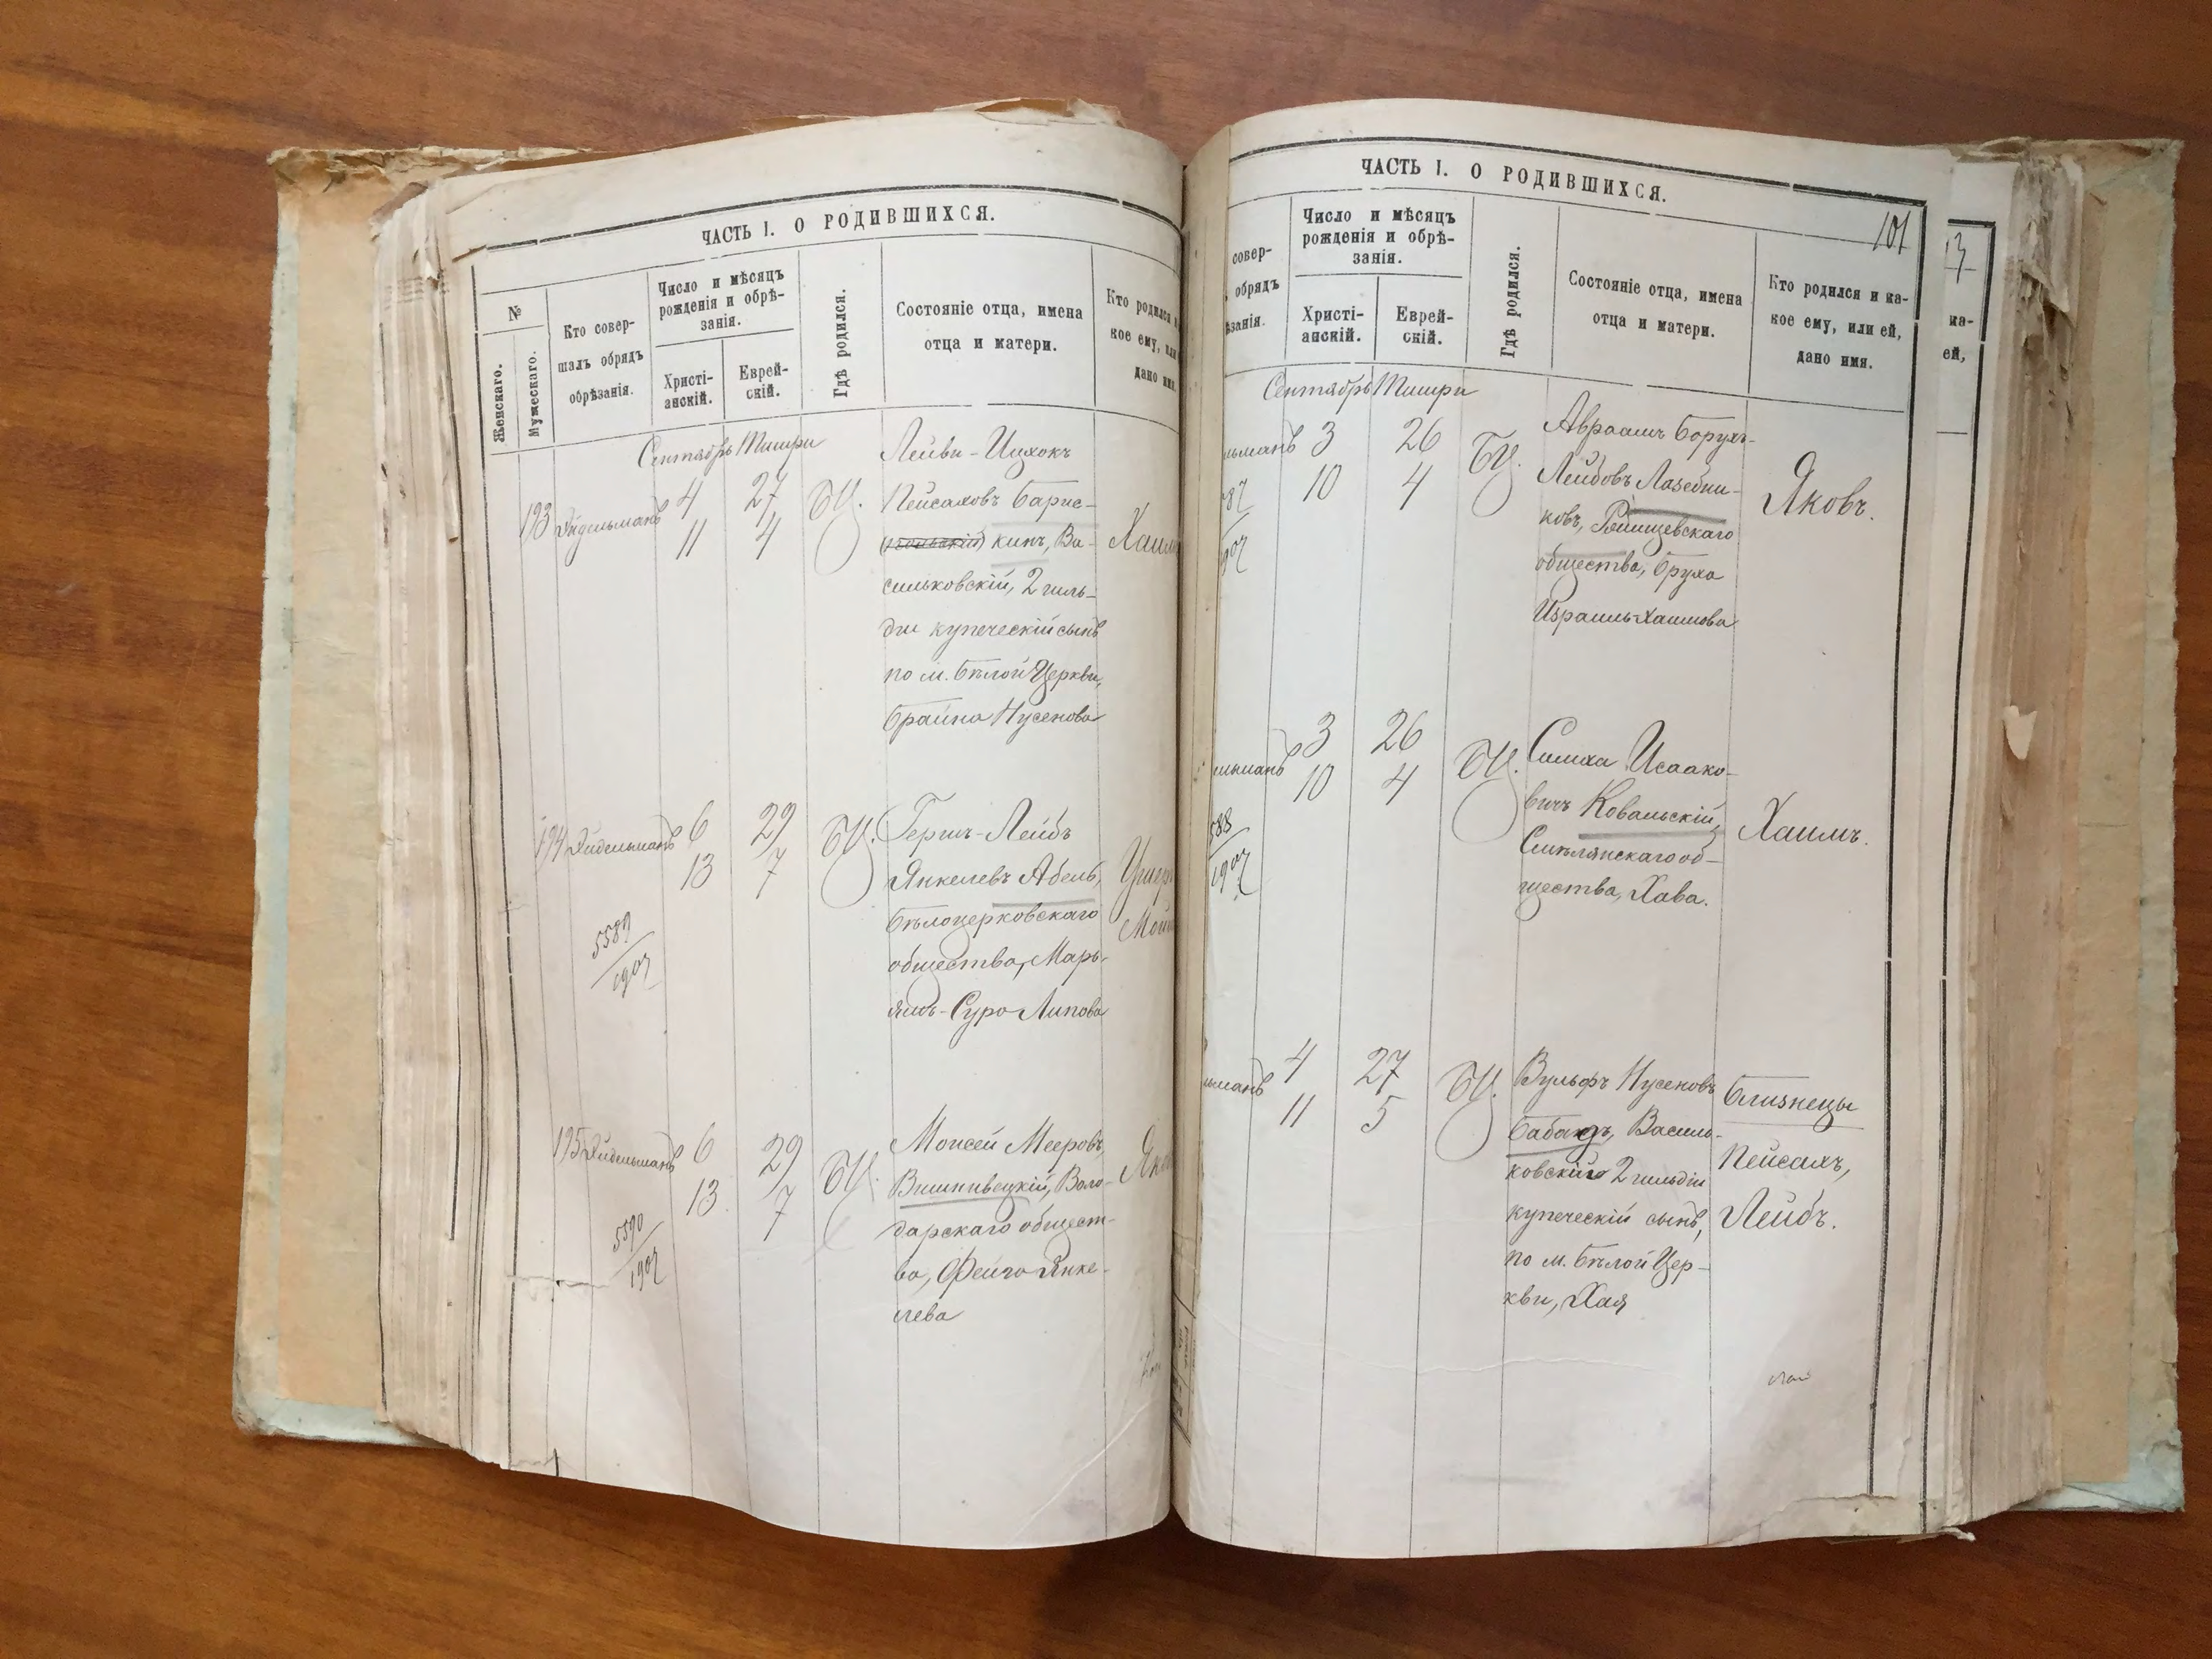 ЧАСТЬ I. О РОДИВШИХСЯ.
№
Женскаго.
Мужескаго.
Кто совер-
шалъ обрядъ
обрѣзанія.
Число и мѣсяцъ
рожденія и обрѣ-
занія.
Христі-
анскій.
Еврей-
скій.
Гдѣ родился.
Состояніе отца, имена
отца и матери.
Кто родился
кое ему, или
дано имя.
Сентябрь Тишри
193 Эйдельманъ 4 27 БЦ.
11 4
Лейви-Ицхокъ
Пейсаховъ Барис-
кинъ, Ва-
сильковскій, 2 гиль-
діи купеческій сынъ
по м. Бѣлой Церкви,
Брайна Нусенова
Хаимъ
194 Эйдельманъ 6 29 БЦ.
13 7
5589
1907
Гершъ-Лейбъ
Янкелевъ Абель,
Бѣлоцерковскаго
общества, Марь-
ямъ-Сура Липова
195 Эйдельманъ 6 29 БЦ.
13 7
5590
1907
Моисей Мееровъ
Вишнивецкій, Воло-
дарскаго общест-
ва, Фейга Янке-
лева
ЧАСТЬ I. О РОДИВШИХСЯ.
101
совер-
обрядъ
ѣзанія.
Число и мѣсяцъ
рожденія и обрѣ-
занія.
Христі-
анскій.
Еврей-
скій.
Гдѣ родился.
Состояніе отца, имена
отца и матери.
Кто родился и ка-
кое ему, или ей,
дано имя.
ка-
ей,
Сентябрь Тишри
льманъ 3 26 БЦ.
10 4
87
907
Авраамъ Борухъ-
Лейбовъ Лазебни-
ковъ,
общества, Бруха
Израиль-Хаимова
Яковъ.
льманъ 3 26 БЦ.
10 4
588
1907
Симха Исаако-
вичъ Ковальскій,
Смѣлянскаго об-
щества, Хава.
Хаимъ.
льманъ 4 27 БЦ.
11 5
Вульфъ Нусеновъ
Василь-
ковскій 2 гильдіи
купеческій сынъ,
по м. Бѣлой Цер-
кви, Хая
Близнецы
Пейсахъ,
Лейбъ.